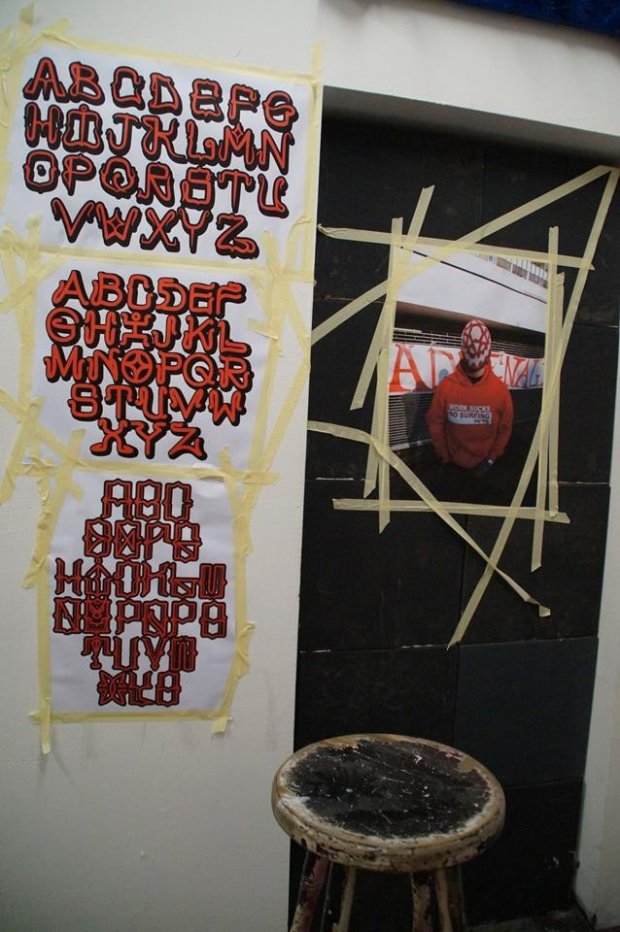 ABCDEFG
HIJKLMN
OPQRSTU
VWXYZ
ABCDEF
GHIJKL
MNOPQR
STUVW
XYZ
ABC
DEFG
HIJKLM
NOPQRS
TUVW
XYZ
WORK SUCKS
GO SURFING